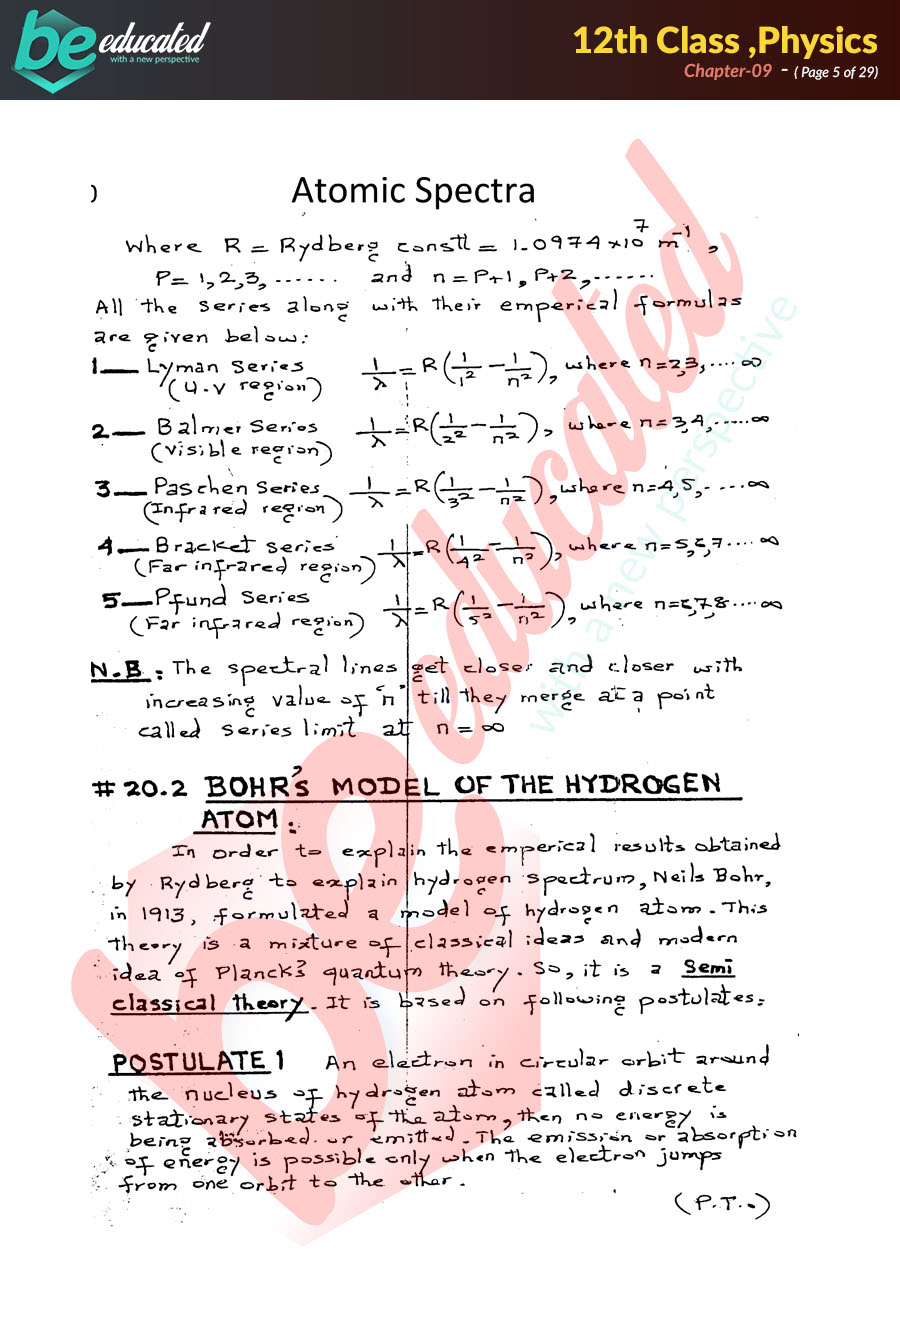 be educated
with a new perspective
12th Class ,Physics
Chapter-09 - ( Page 5 of 29)
Atomic Spectra
Where R = Rydberg constt = 1.0974×10⁷ m⁻¹,
P = 1,2,3, ...... and n = P+1, P+2, ......
All the series along with their emperical formulas
are given below:
1— Lyman Series 1/λ = R(1/1² − 1/n²), where n=2,3, .... ∞
(U.V region)
2— Balmer Series 1/λ = R(1/2² − 1/n²), where n=3,4, ..... ∞
(Visible region)
3— Paschen Series 1/λ = R(1/3² − 1/n²), where n=4,5, .... ∞
(Infrared region)
4— Bracket Series 1/λ = R(1/4² − 1/n²), where n=5,6,7 .... ∞
(Far infrared region)
5— Pfund Series 1/λ = R(1/5² − 1/n²), where n=6,7,8 .... ∞
(Far infrared region)
N.B : The spectral lines get closer and closer with
increasing value of 'n' till they merge at a point
called series limit at n = ∞
# 20.2 BOHR'S MODEL OF THE HYDROGEN
ATOM :
In order to explain the emperical results obtained
by Rydberg to explain hydrogen spectrum, Neils Bohr,
in 1913, formulated a model of hydrogen atom. This
theory is a mixture of classical ideas and modern
idea of Planck's quantum theory. So, it is a Semi
classical theory. It is based on following postulates:
POSTULATE 1 An electron in circular orbit around
the nucleus of hydrogen atom called discrete
stationary states of the atom, then no energy is
being absorbed or emitted. The emission or absorption
of energy is possible only when the electron jumps
from one orbit to the other.
(P.T..)
be educated
with a new perspective